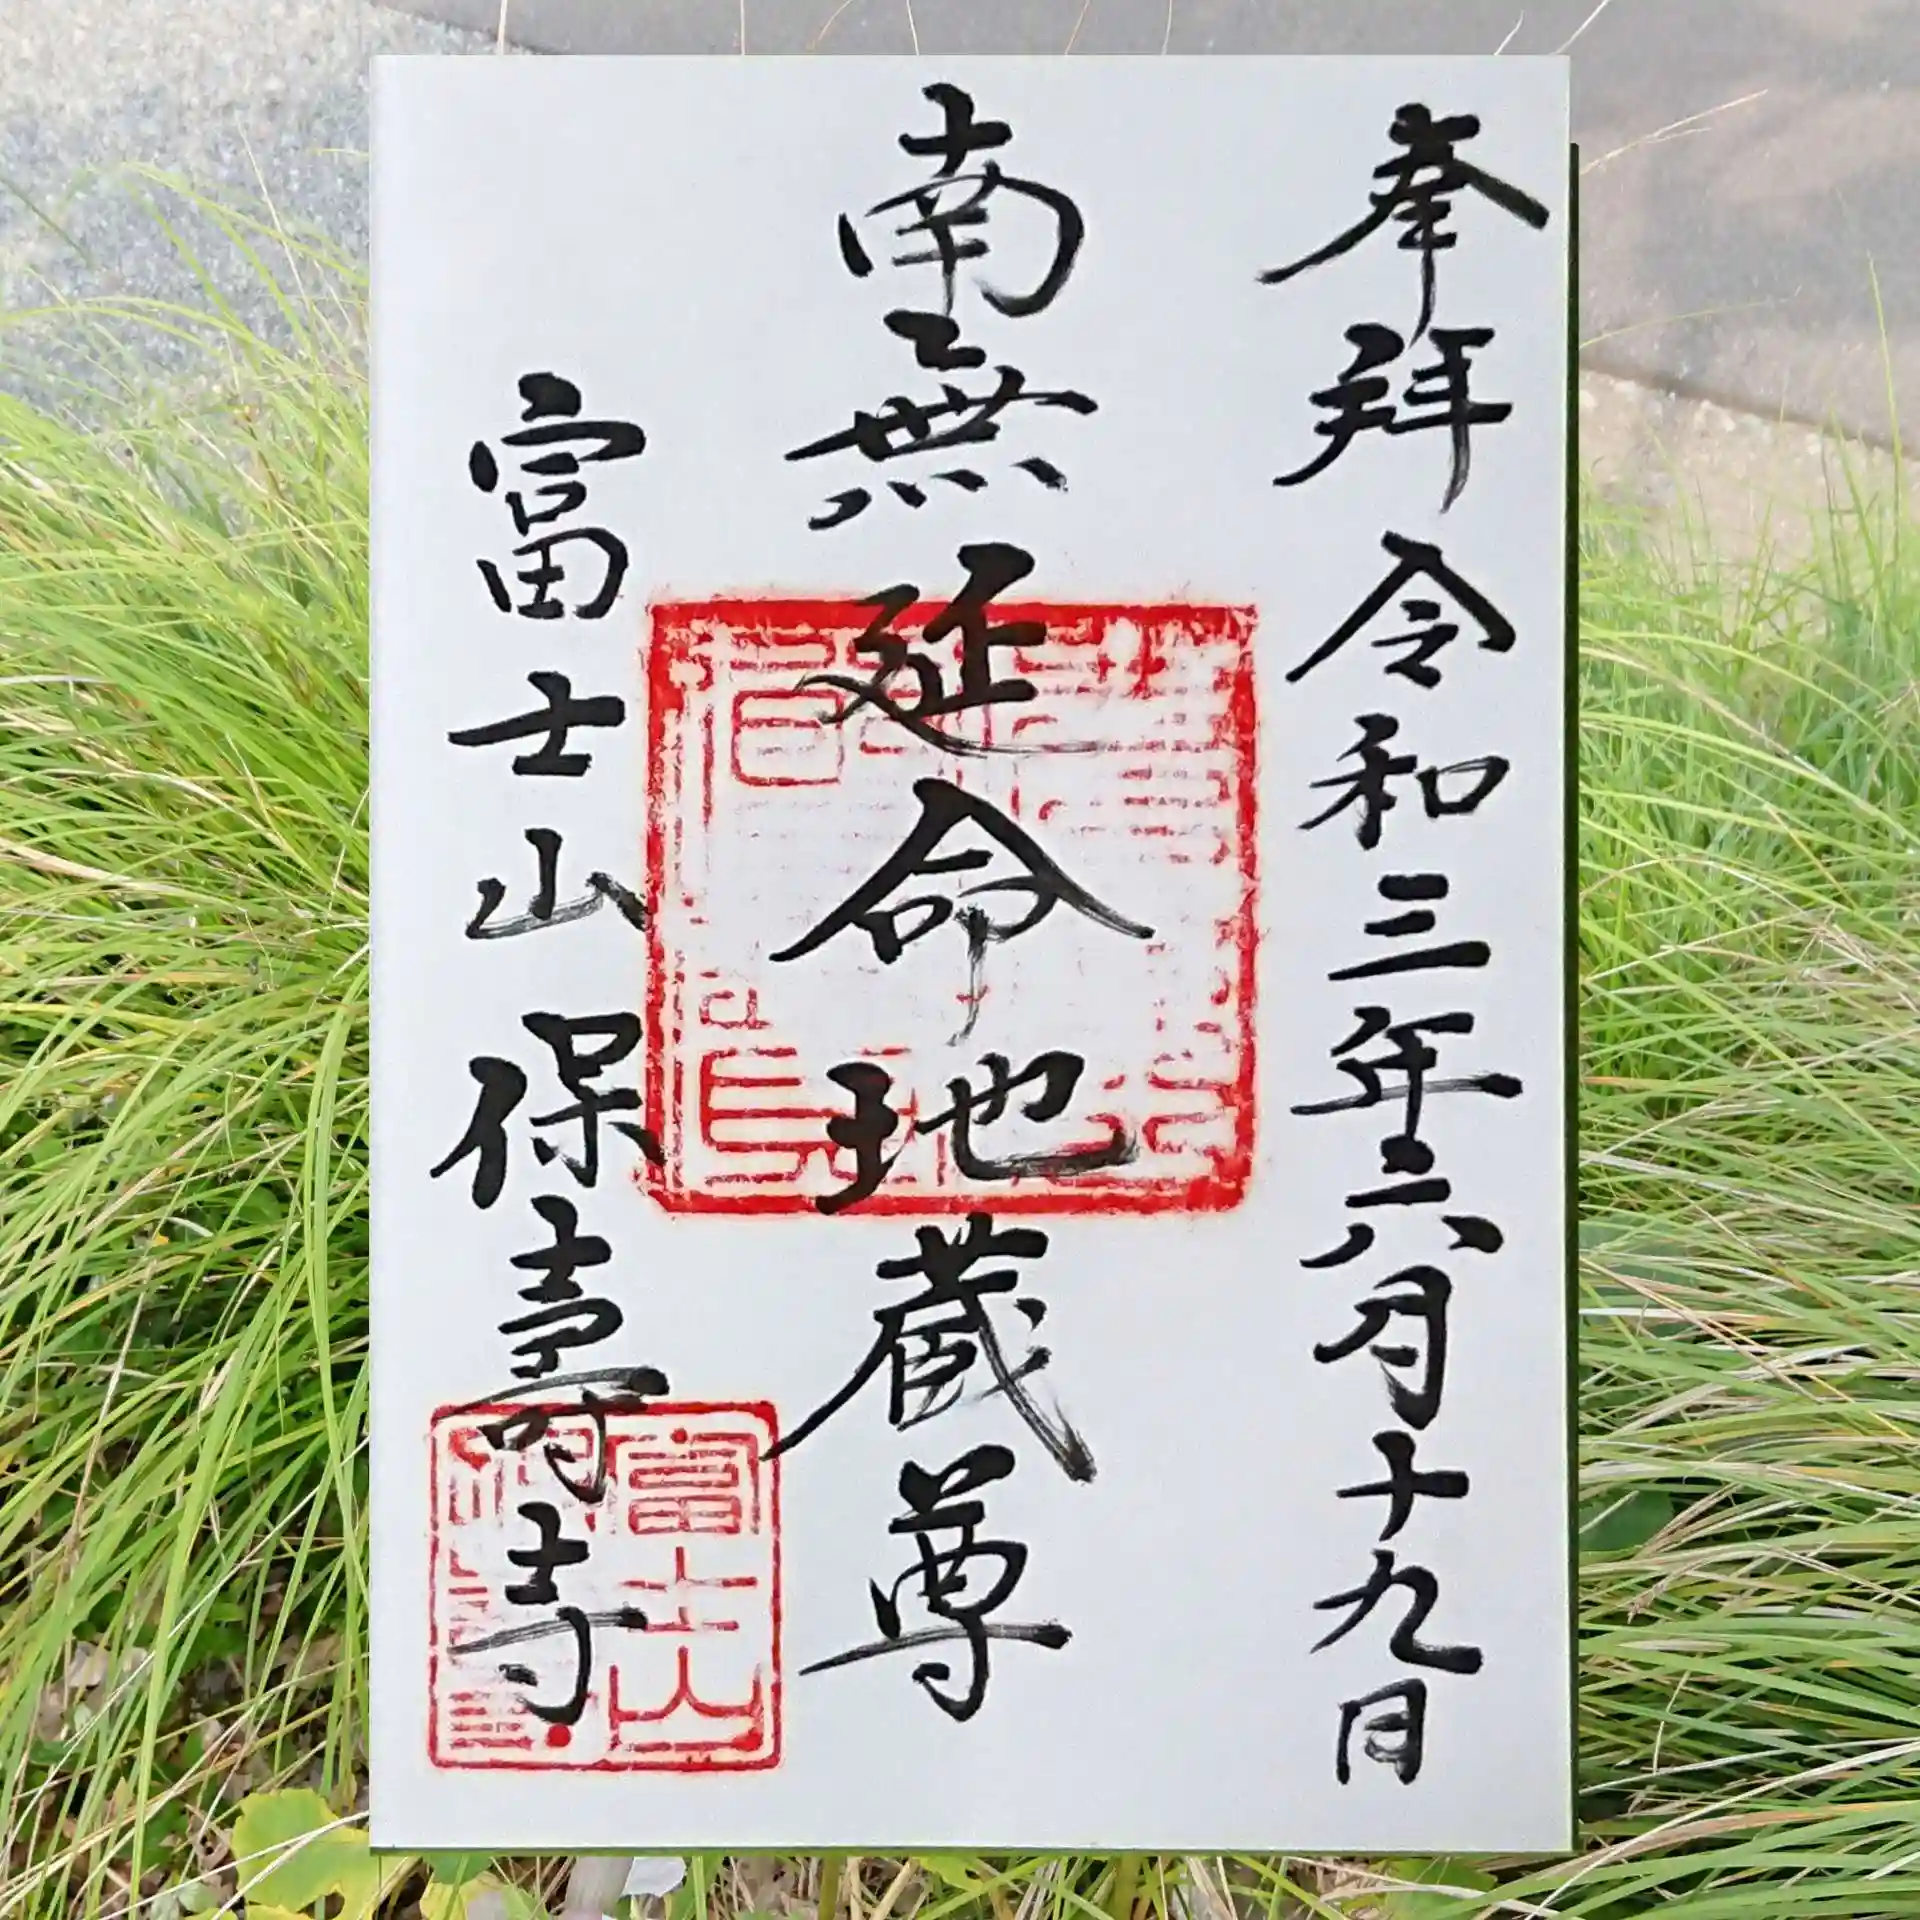 奉拝 令和三年六月十九日
南無延命地蔵尊
富士山保壽寺
富士山